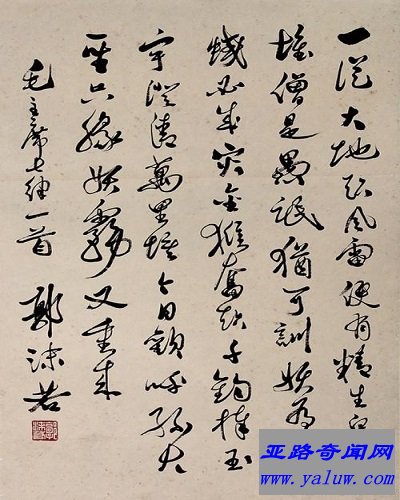 一從大地起風雷便有精生白
堆僧是愚氓猶可訓妖為
蜮必成灾金猴奮起千鈞棒玉
宇澄清萬里埃今日歡呼孫大
聖只緣妖霧又重来
毛主席七律一首
郭沫若
亚路奇闻网
www.yaluw.com